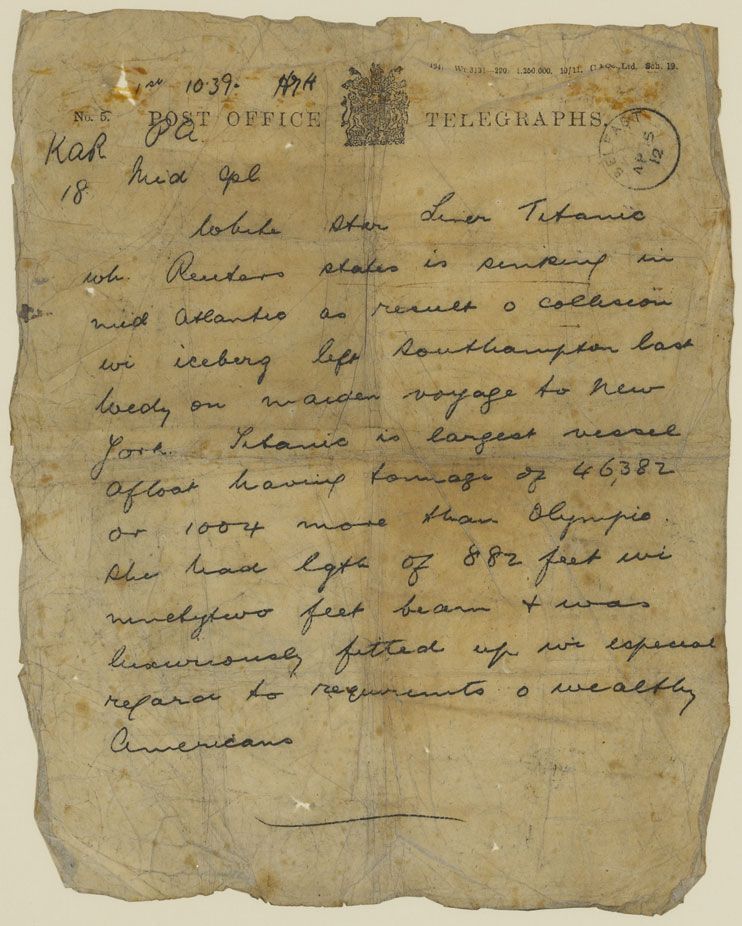 494) Wt 3131-220 1,250,000. 10/11. Ltd. Sch. 19.
1st 10.39.
No. 5. POST OFFICE TELEGRAPHS.
PA
BELFAST AP 15 12
KAR
18 Mid
White Star Liner Titanic
wh. Reuters states is sinking in
mid Atlantic as result o collision
wi iceberg left Southampton last
Wedy on maiden voyage to New
York. Titanic is largest vessel
afloat having tonnage of 46,382
or 1004 more than Olympic.
She had lgth of 882 feet wi
ninetytwo feet beam & was
luxuriously fitted up wi especial
regard to requirmts o wealthy
Americans